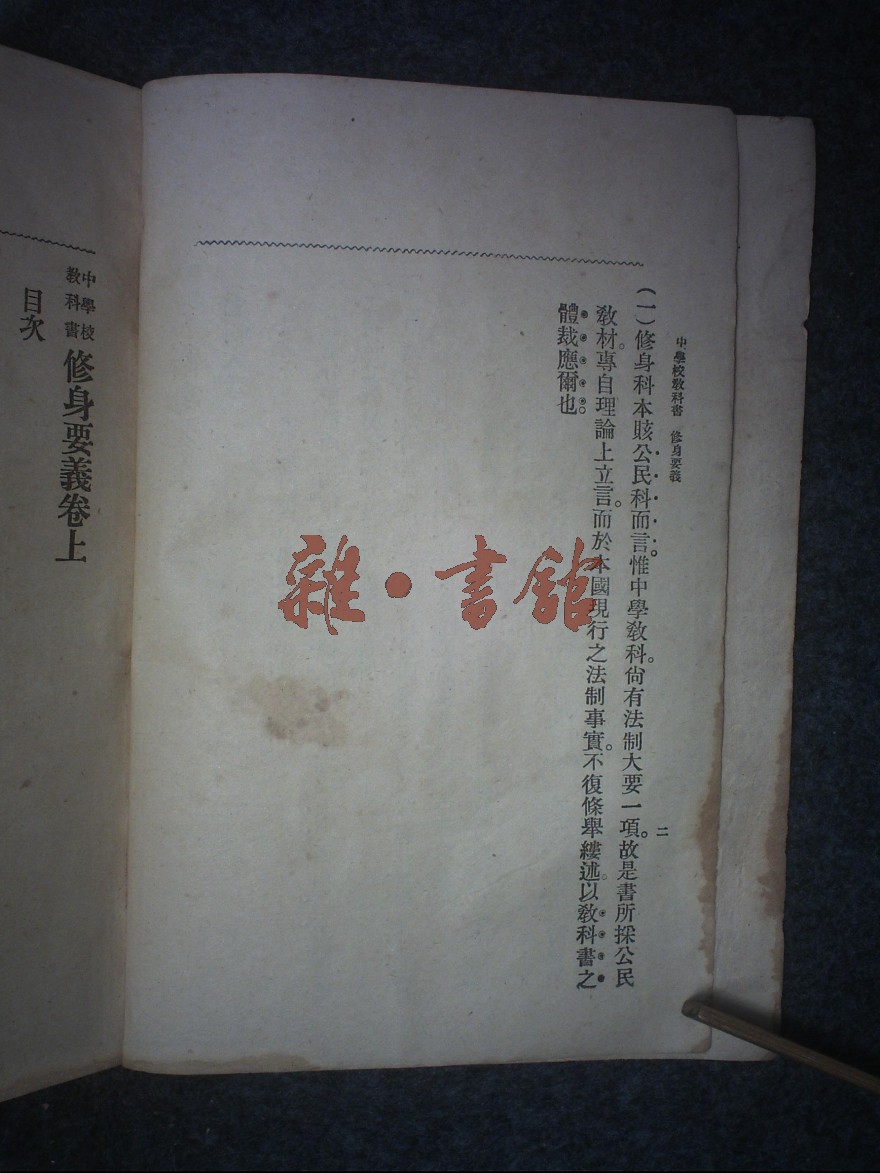 中學校教科書 修身要義
二
(一)修身科本賅公民科而言。惟中學教科。尙有法制大要一項。故是書所採公民
教材。專自理論上立言。而於本國現行之法制事實。不復條舉縷述。以教科書之
體裁應爾也。
中學校
教科書
修身要義卷上
目次
雜·書館